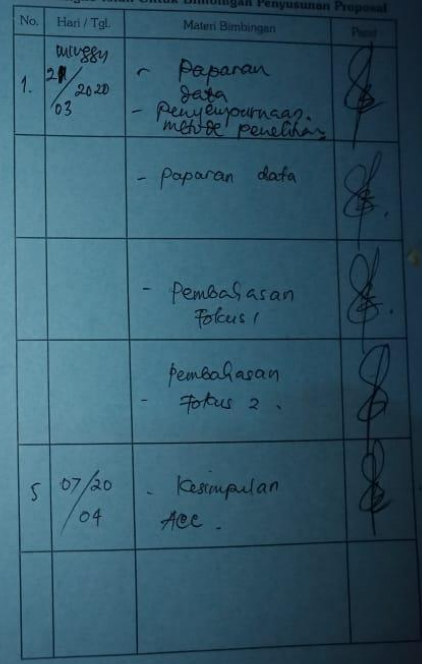 Untuk Bimbingan Penyusunan Proposal
No. Hari / Tgl. Materi Bimbingan Paraf
1. Minggu
2020
03
- Paparan
data
- Penyempurnaan
metode penelitian
- Paparan data
- Pembahasan
Fokus 1
Pembahasan
- Fokus 2.
5 07/20
04
- Kesimpulan
ACC.